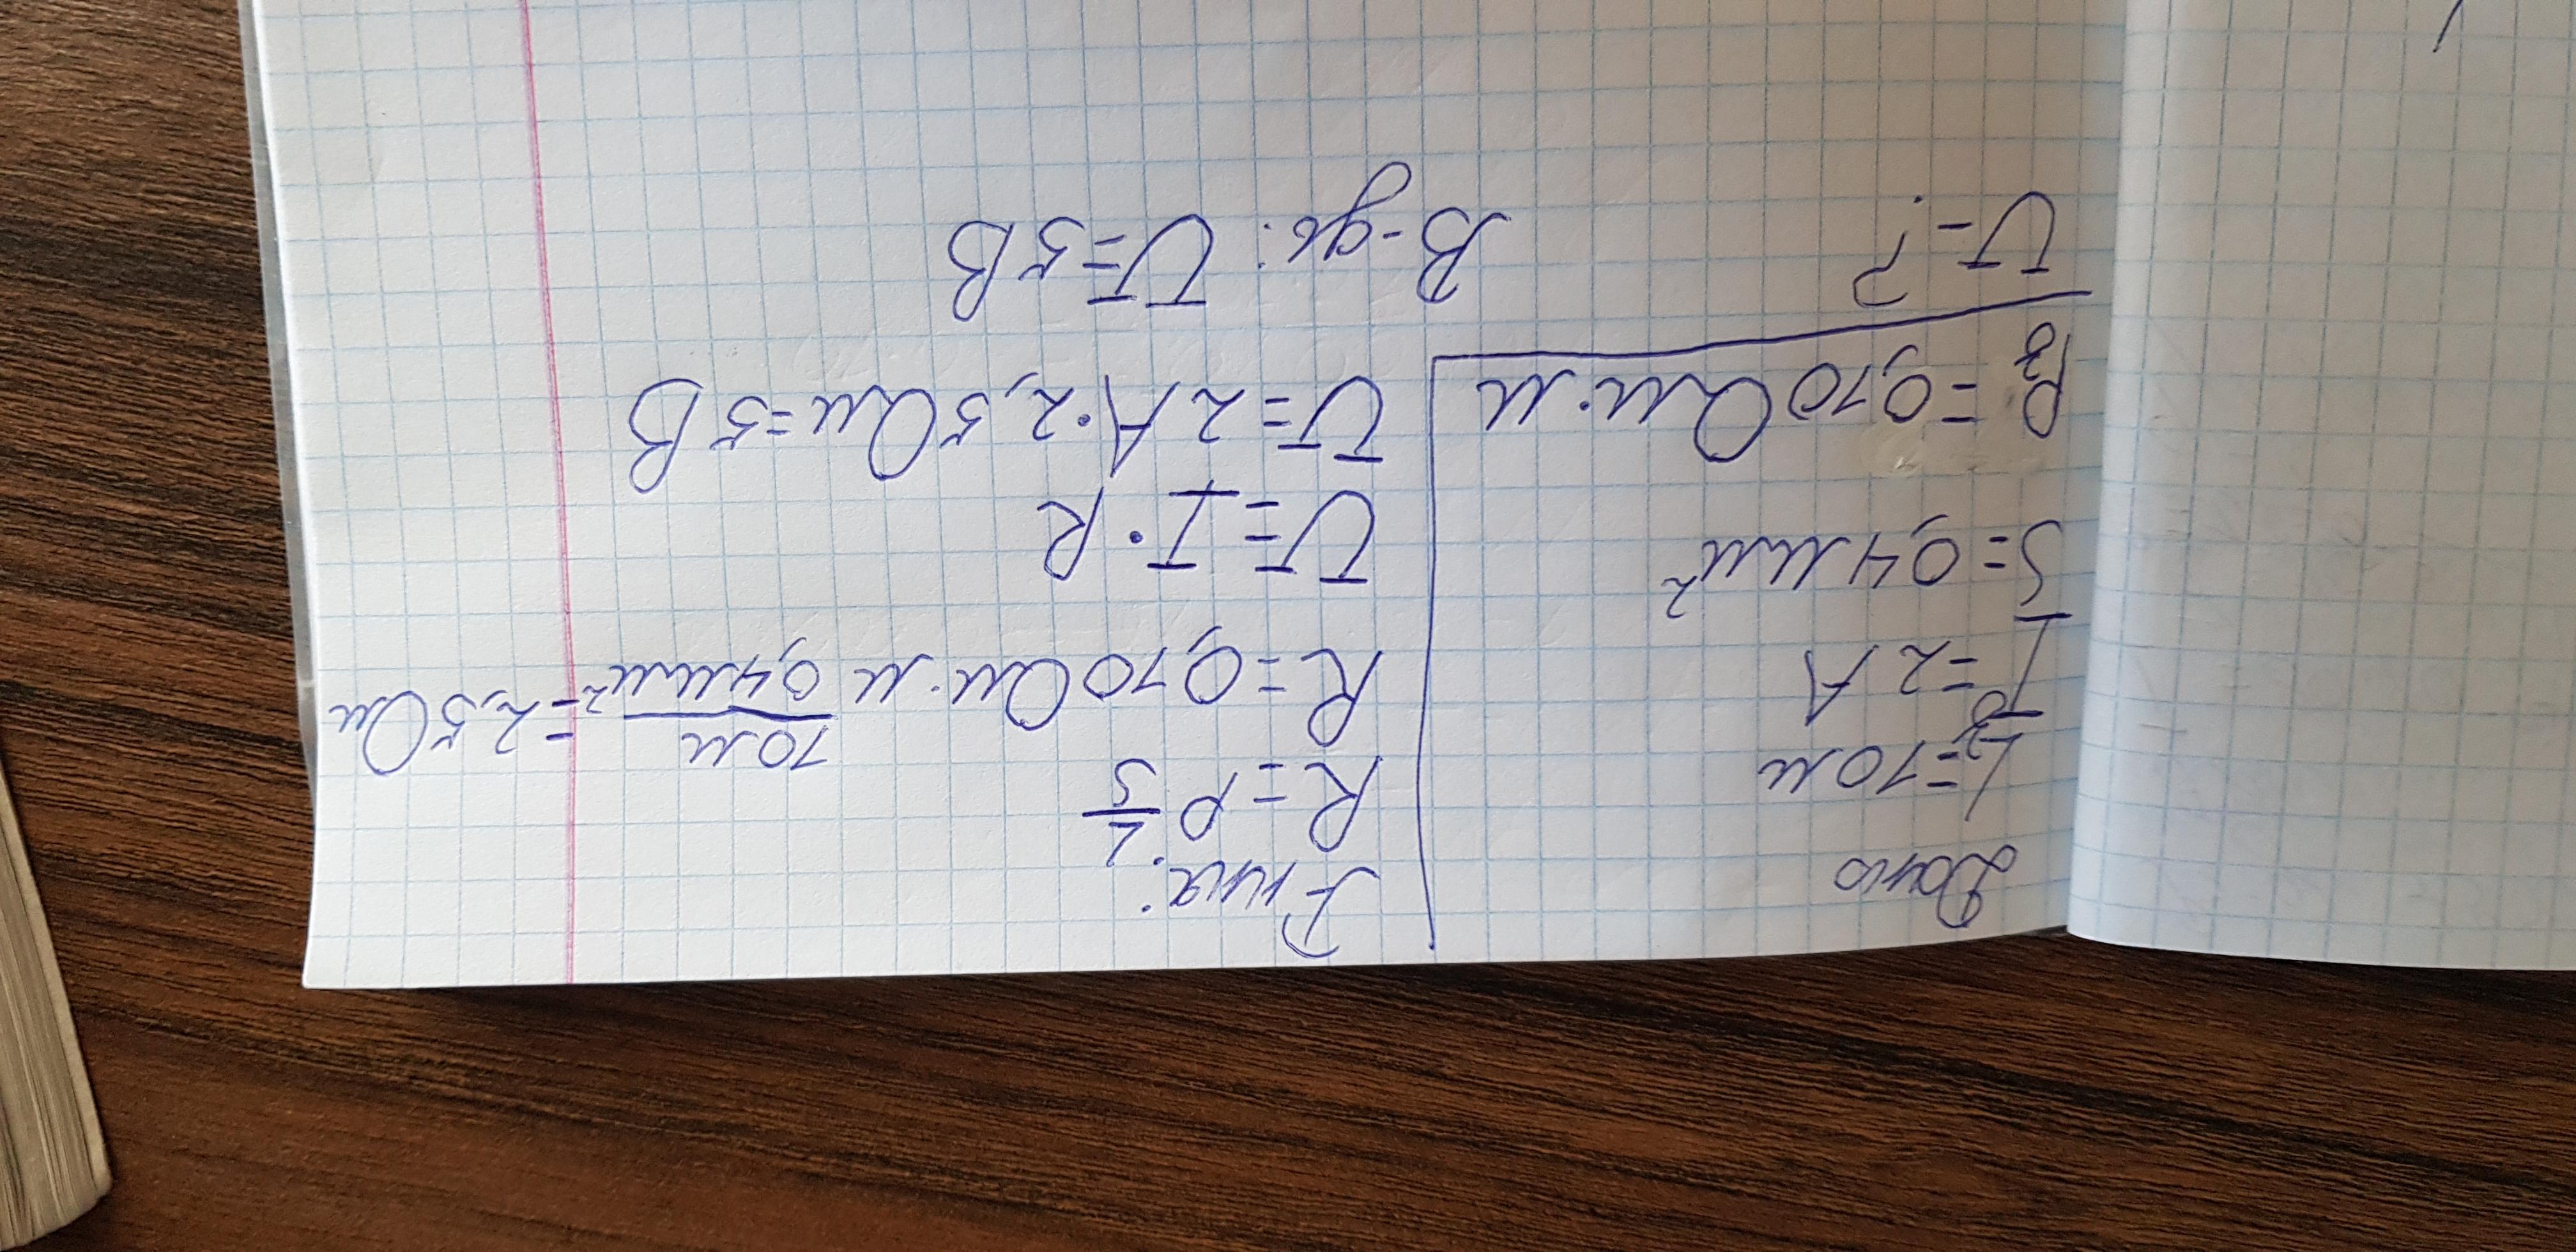 Дано
L=10м
I=2А
S=0,4мм²
Pз=0,10Ом·м
U-?
Ф-ла:
R=P L/S
R=0,10Ом·м 10м/0,4мм²=2,5Ом
U=I·R
U=2А·2,5Ом=5В
В-дь: U=5В